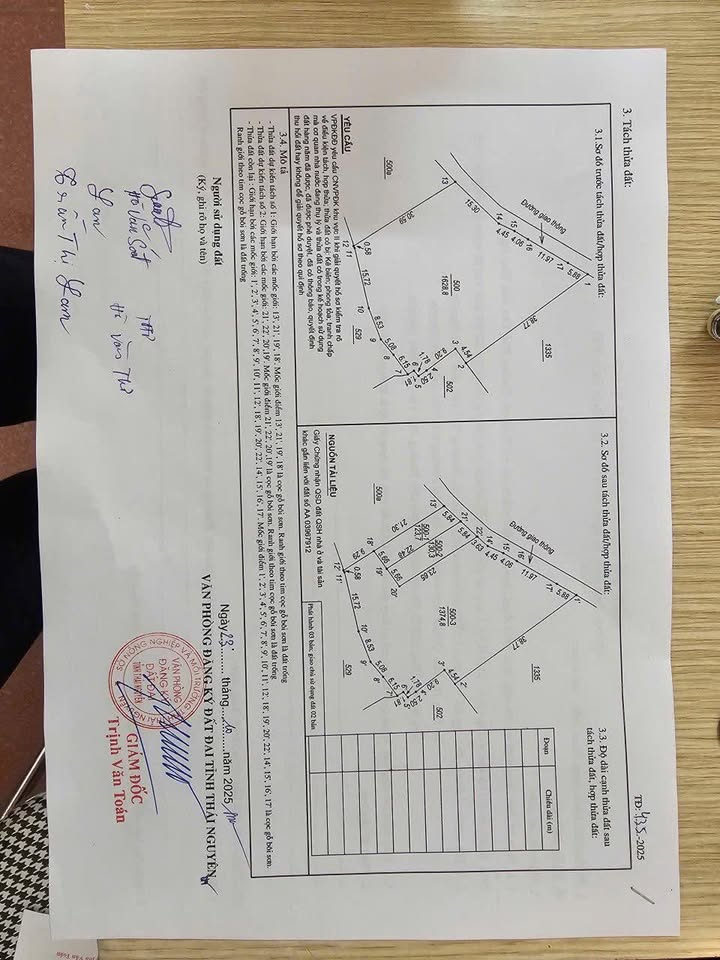 TĐ: 435.-2025
3. Tách thửa đất:
3.1. Sơ đồ trước tách thửa đất/hợp thửa đất:
Đường giao thông
500a
13
15,30
14
4,45
15
4,06
16
11,97
17
5,88
1
1335
500
1628,8
3
4,54
2
502
1,78
0,58
12
11
15,72
10
8,53
9
5,08
8
6,15
7
6
5
529
YÊU CẦU
VPĐKĐĐ yêu cầu CNVPĐK khu vực khi giải quyết hồ sơ kiểm tra rõ
về điều kiện tách, hợp thửa; thửa đất có bị: Kê biên; phong tỏa; tranh chấp
mà cơ quan nhà nước đang thụ lý và thửa đất có trong kế hoạch sử dụng
đất hàng năm đã được, đã được phê duyệt, đã có thông báo, quyết định
thu hồi đất hay không để giải quyết hồ sơ theo qui định
3.2. Sơ đồ sau tách thửa đất/hợp thửa đất:
Đường giao thông
500a
13'
5,84
21'
5,84
22'
3,63
14'
4,45
15'
4,06
16'
11,97
17'
5,88
1'
1335
500-1
500-2
500-3
1374,8
3'
4,54
2'
502
1,78
18'
5,66
19'
5,66
20'
0,58
12'
11'
15,72
10'
8,53
9'
5,08
8'
6,15
529
NGUỒN TÀI LIỆU
Giấy Chứng nhận QSD đất QSH nhà ở và tài sản
khác gắn liền với đất số AA 03967912
Phát hành 03 bản; giao chủ sử dụng đất 02 bản
3.3. Độ dài cạnh thửa đất sau
tách thửa đất, hợp thửa đất:
Đoạn
Chiều dài (m)
3.4. Mô tả
- Thửa đất dự kiến tách số 1: Giới hạn bởi các mốc giới: 13', 21', 19', 18'. Mốc giới điểm 13', 21', 19', 18' là cọc gỗ bôi sơn. Ranh giới theo tim cọc gỗ bôi sơn là đất trống
- Thửa đất dự kiến tách số 2: Giới hạn bởi các mốc giới: 21', 22', 20', 19'. Mốc giới điểm 21', 22', 20', 19' là cọc gỗ bôi sơn. Ranh giới theo tim cọc gỗ bôi sơn là đất trống
- Thửa đất còn lại : Giới hạn bởi các mốc giới: 1', 2', 3', 4', 5', 6', 7', 8', 9', 10', 11', 12', 18', 19', 20', 22', 14', 15', 16', 17'. Mốc giới điểm 1', 2', 3', 4', 5', 6', 7', 8', 9', 10', 11', 12', 18', 19', 20', 22', 14', 15', 16', 17' là cọc gỗ bôi sơn.
Ranh giới theo tim cọc gỗ bôi sơn là đất trống
Người sử dụng đất
(Ký, ghi rõ họ và tên)
Hồ Văn Thư
Lan
Trần Thị Lan
Ngày 23 tháng 10 năm 2025
VĂN PHÒNG ĐĂNG KÝ ĐẤT ĐAI TỈNH THÁI NGUYÊN
SỞ NÔNG NGHIỆP VÀ MÔI TRƯỜNG
VĂN PHÒNG
ĐĂNG KÝ
ĐẤT ĐAI
TỈNH THÁI NGUYÊN
GIÁM ĐỐC
Trịnh Văn Toán